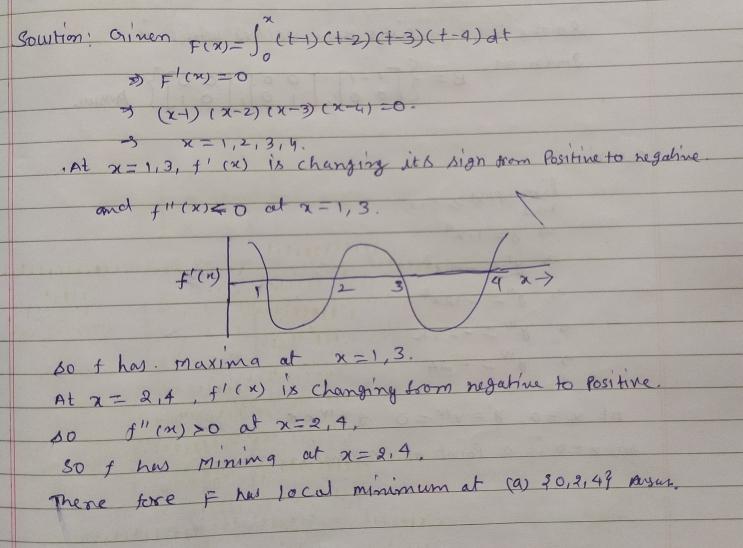 Solution: Given F(x) = ∫₀ˣ (t-1) (t-2) (t-3) (t-4) dt
⇒ F'(x) = 0
⇒ (x-1) (x-2) (x-3) (x-4) = 0.
⇒ x = 1, 2, 3, 4.
. At x = 1, 3, f'(x) is changing its sign from Positive to negative.
and f''(x) < 0 at x = 1, 3.
f'(x) 1 2 3 4 x →
so f has. maxima at x = 1, 3.
At x = 2, 4, f'(x) is changing from negative to Positive.
so f''(x) > 0 at x = 2, 4,
So f has Minima at x = 2, 4.
There fore F has local minimum at (a) {0, 2, 4}